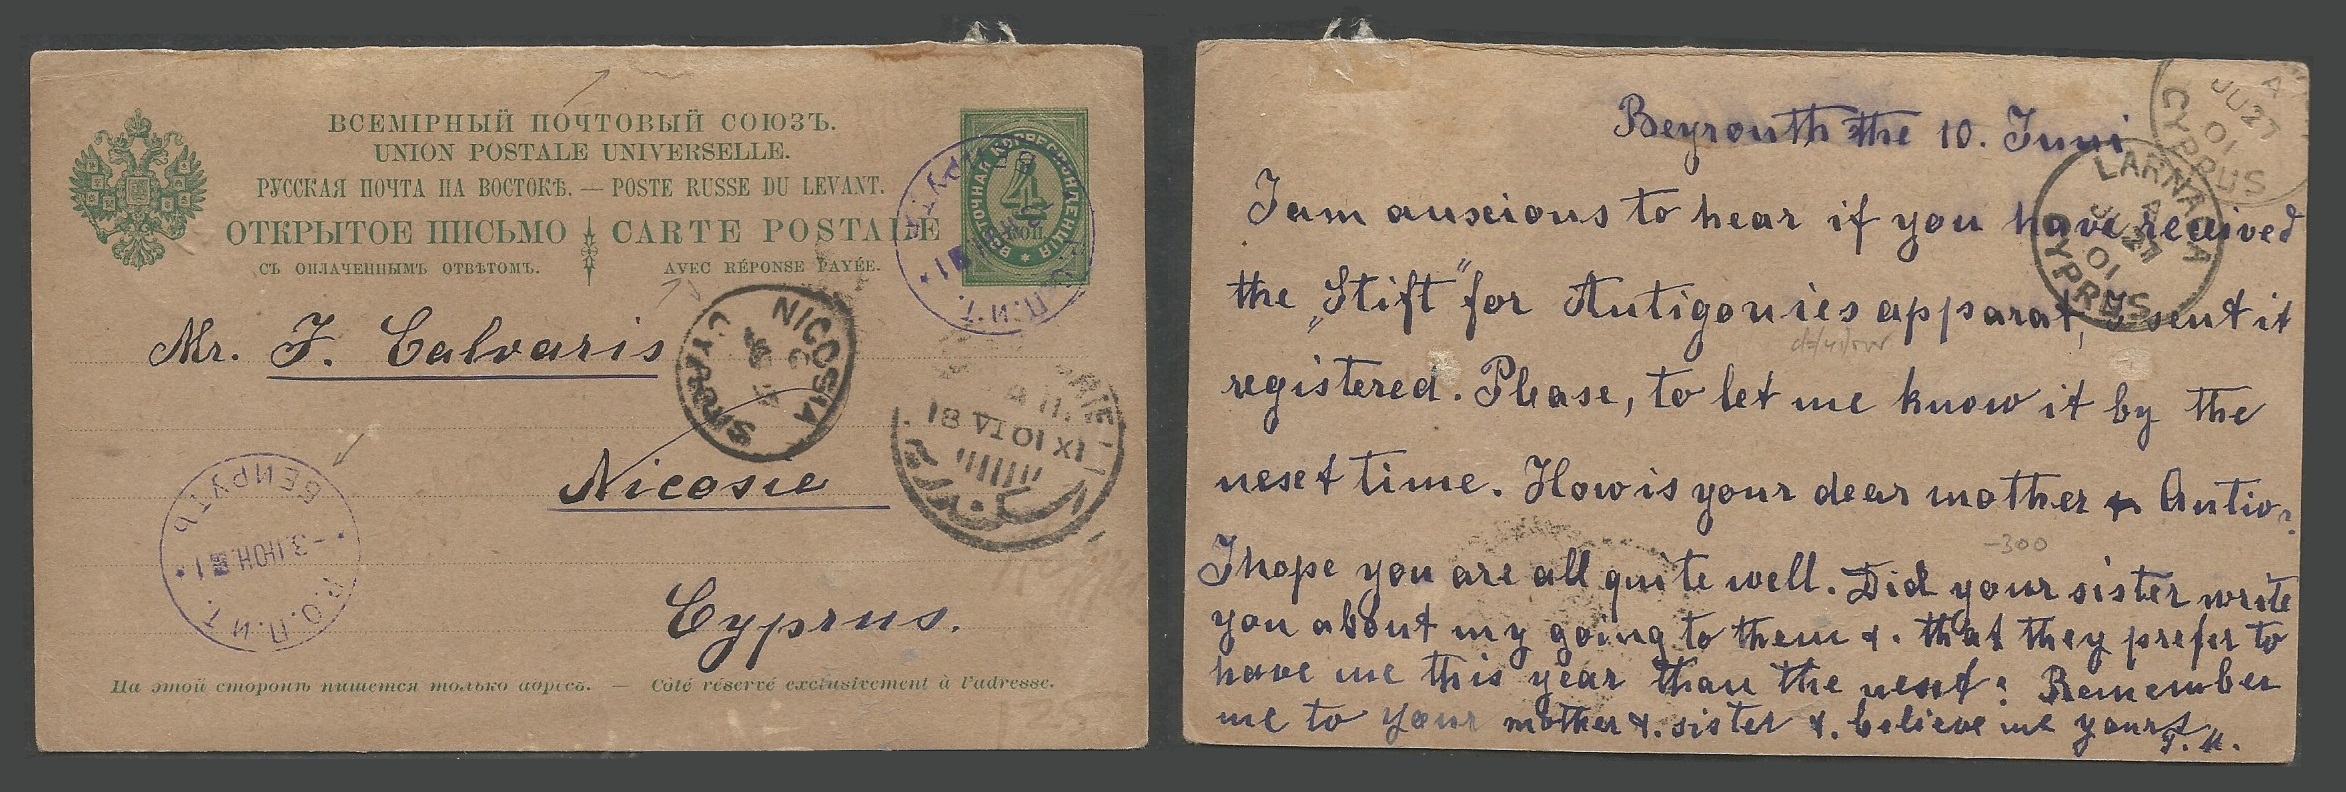 ВСЕМІРНЫЙ ПОЧТОВЫЙ СОЮЗЪ.
UNION POSTALE UNIVERSELLE.
РУССКАЯ ПОЧТА НА ВОСТОКѢ. — POSTE RUSSE DU LEVANT.
ОТКРЫТОЕ ПИСЬМО CARTE POSTALE
СЪ ОПЛАЧЕННЫМЪ ОТВѢТОМЪ. AVEC RÉPONSE PAYÉE.
ВОСТОЧНАЯ КОРРЕСПОНДЕНЦІЯ
4
КОП.
Р.О.П.и Т.
NICOSIA
CYPRUS
Mr. J. Calvaris
Nicosie
Cyprus.
18 VI 01 XI
БЕЙРУТЪ
-3.ІЮН. 1
Р.О.П.и Т.
На этой сторонѣ пишется только адресъ. — Côté réservé exclusivement à l'adresse.
A
JU 27
01
CYPRUS
LARNACA
A
JU 27
01
CYPRUS
Beyrouth the 10. Juni
I am auxious to hear if you have received
the „Stift" for Antigonies apparat, I sent it
registered. Please, to let me know it by the
next time. How is your dear mother &
-300
I hope you are all quite well. Did your sister write
you about my going to them &. that they prefer to
have me this year than the next? Remember
me to your mother &. sister &. believe me yours
J. M.